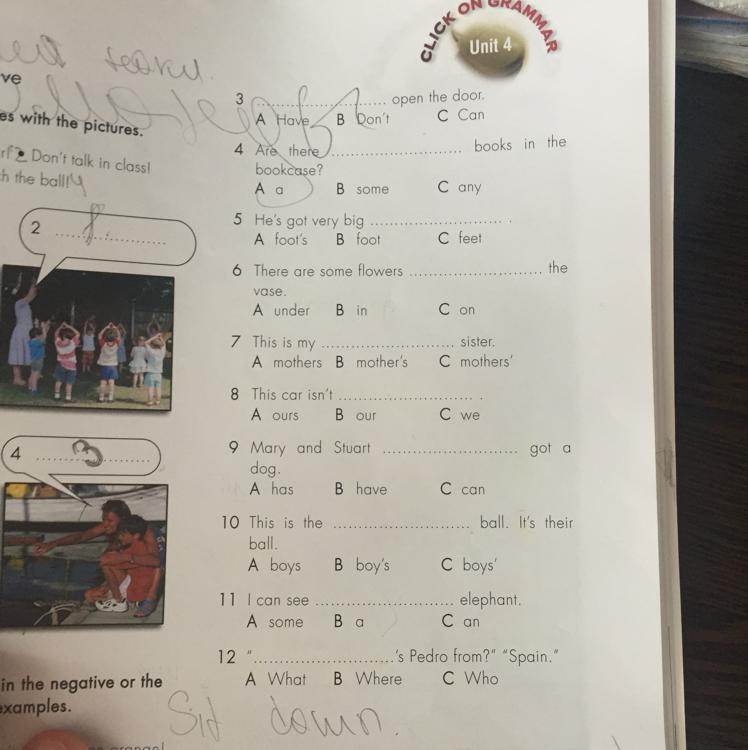 CLICK ON GRAMMAR
Unit 4
ve
es with the pictures.
Don't talk in class!
h the ball!
2 ............................
4 ............................
3
in the negative or the
examples.
3 ............................ open the door.
A Have B Don't C Can
4 Are there ............................ books in the
bookcase?
A a B some C any
5 He's got very big ............................ .
A foot's B foot C feet
6 There are some flowers ............................ the
vase.
A under B in C on
7 This is my ............................ sister.
A mothers B mother's C mothers'
8 This car isn't ............................ .
A ours B our C we
9 Mary and Stuart ............................ got a
dog.
A has B have C can
10 This is the ............................ ball. It's their
ball.
A boys B boy's C boys'
11 I can see ............................ elephant.
A some B a C an
12 "............................'s Pedro from?" "Spain."
A What B Where C Who
Sit down.